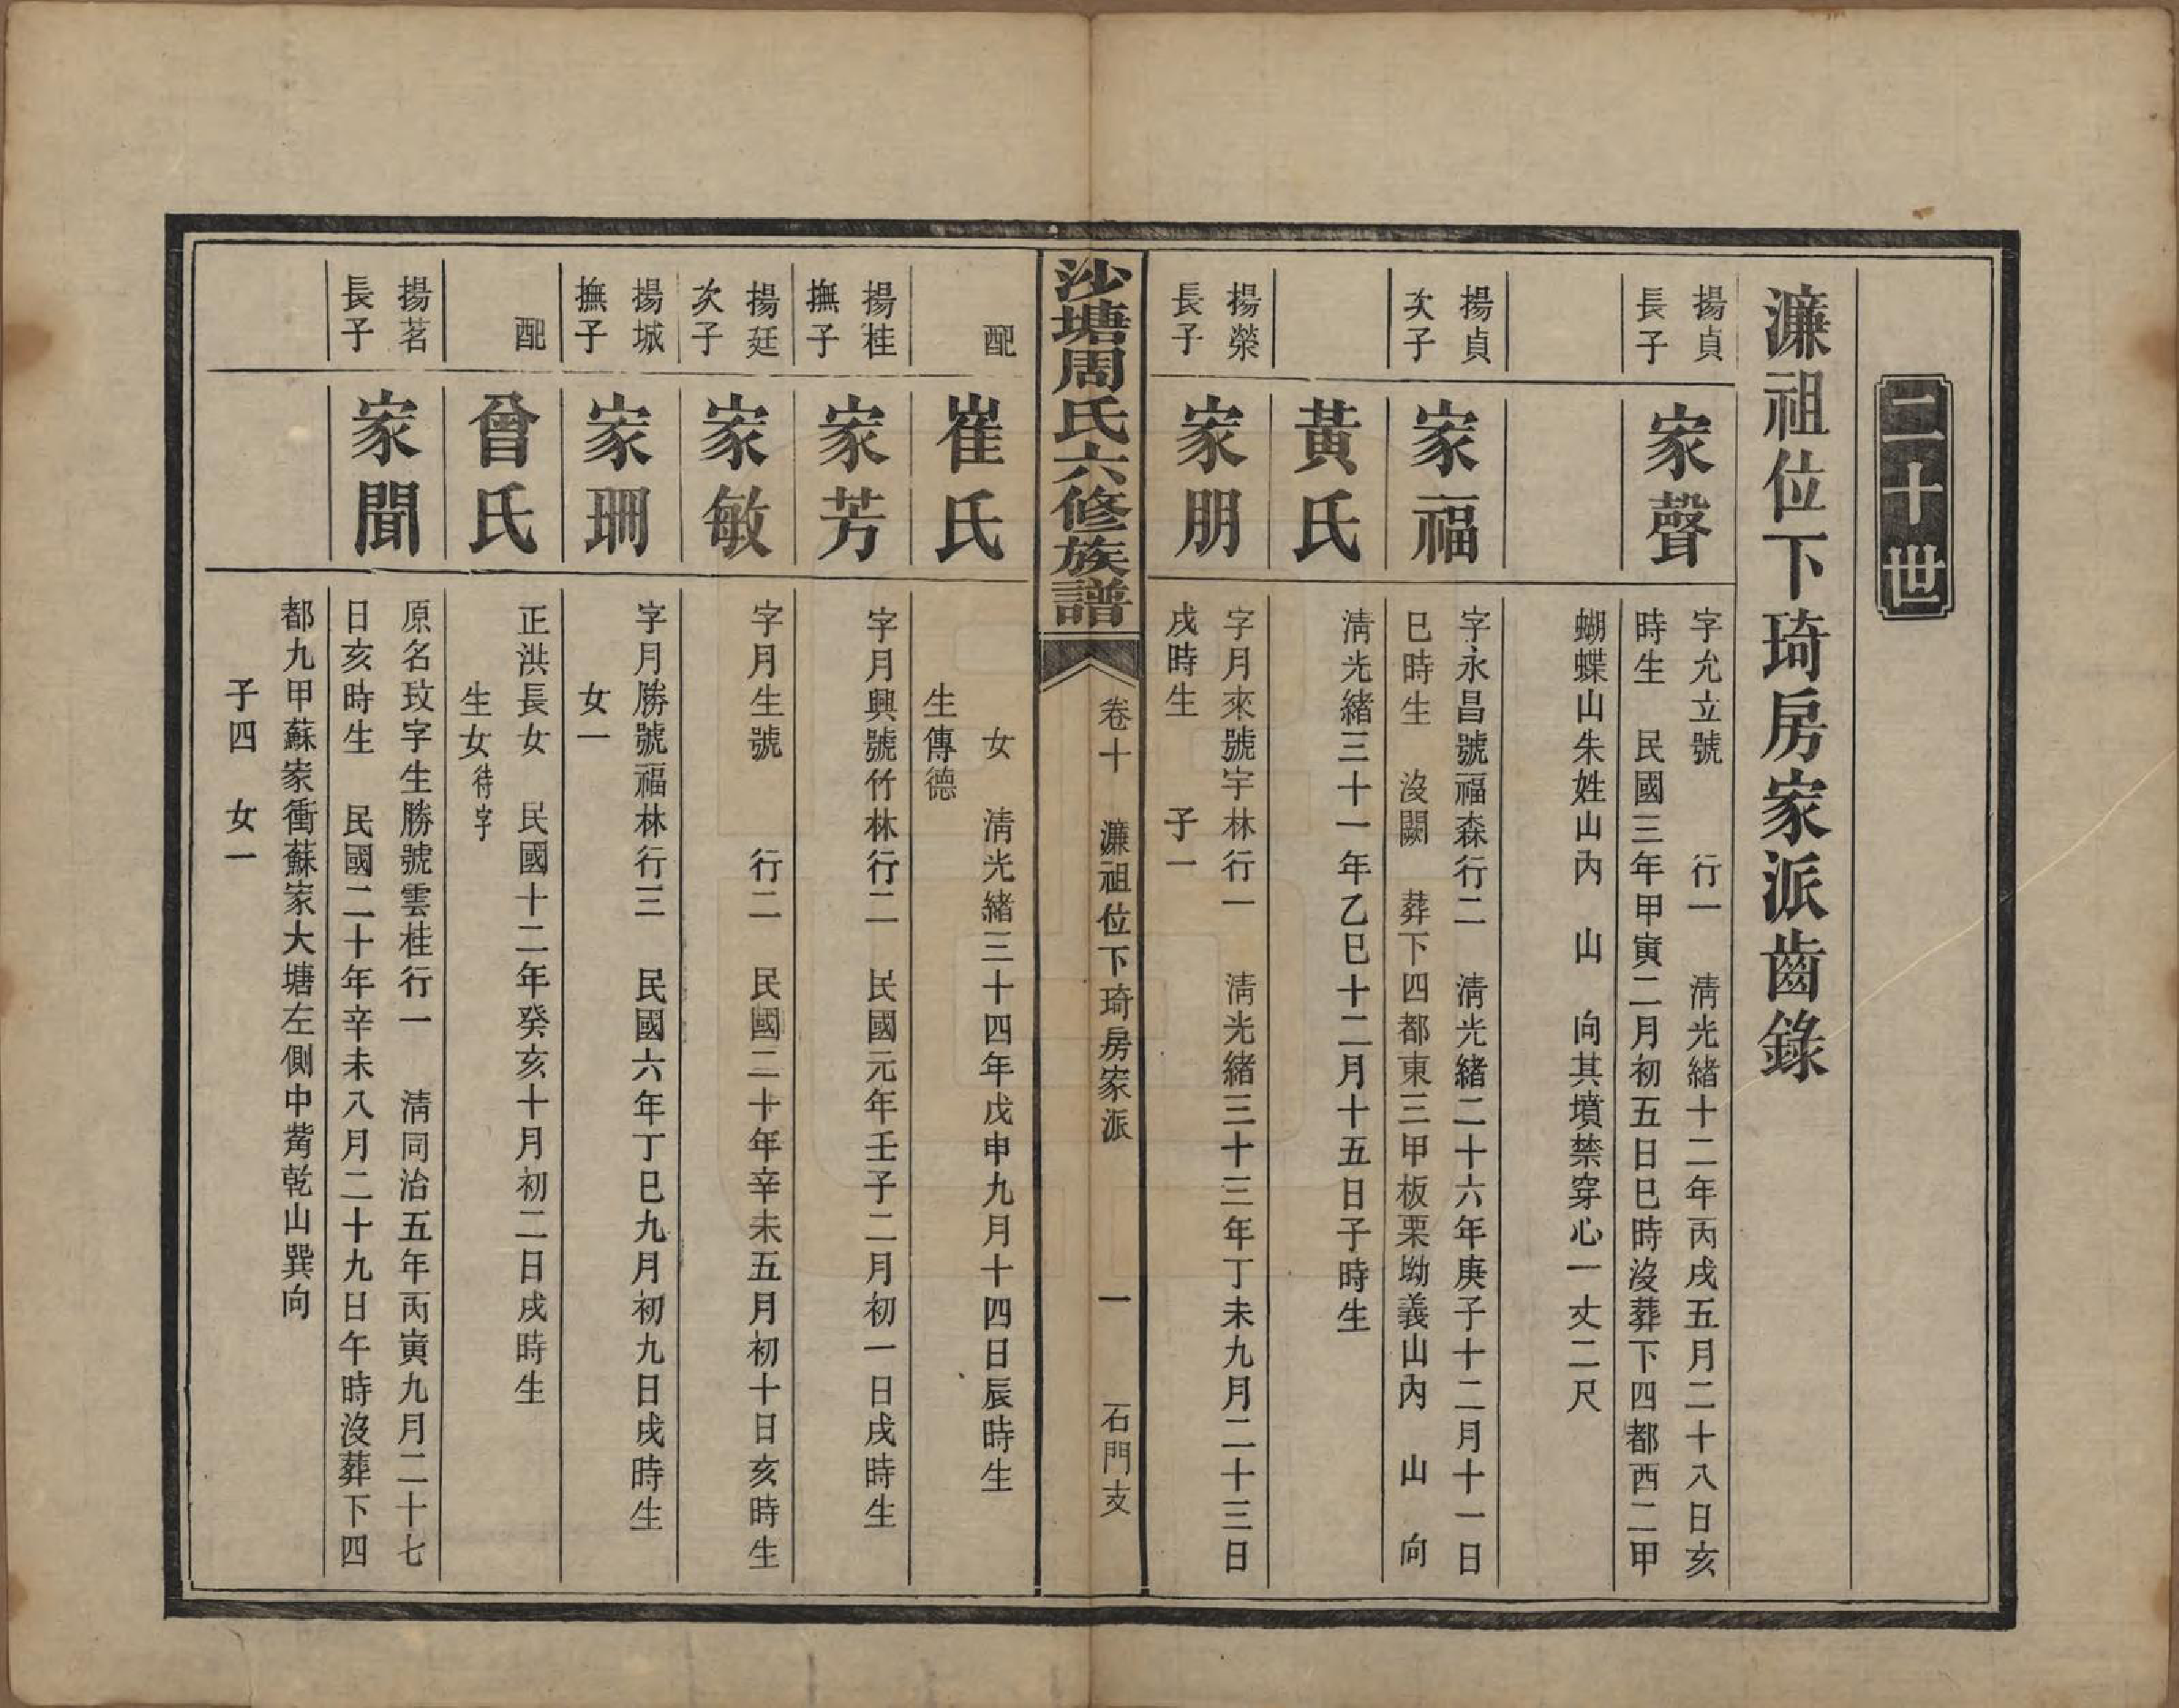 二十世
濂祖位下琦房家派齒錄
揚貞
長子
家聲
字允立號　行一　清光緒十二年丙戌五月二十八日亥
時生　民國三年甲寅二月初五日巳時沒葬下四都西二甲
蝴蝶山朱姓山內　山　向其墳禁穿心一丈二尺
揚貞
次子
家福
字永昌號福森行二　清光緒二十六年庚子十二月十一日
巳時生　沒闕　葬下四都東三甲板栗坳義山內　山　向
黃氏
清光緒三十一年乙巳十二月十五日子時生
揚榮
長子
家朋
字月來號宇林行一　清光緒三十三年丁未九月二十三日
戌時生　子一
沙塘周氏六修族譜
卷十　濂祖位下琦房家派　一　石門支
配
崔氏
女　清光緒三十四年戊申九月十四日辰時生
生傳德
揚桂
撫子
家芳
字月興號竹林行二　民國元年壬子二月初一日戌時生
揚廷
次子
家敏
字月生號　行二　民國二十年辛未五月初十日亥時生
揚城
撫子
家珊
字月勝號福林行三　民國六年丁巳九月初九日戌時生
女一
配
曾氏
正洪長女　民國十二年癸亥十月初二日戌時生
生女待字
揚茗
長子
家聞
原名玟字生勝號雲桂行一　清同治五年丙寅九月二十七
日亥時生　民國二十年辛未八月二十九日午時沒葬下四
都九甲蘇家衝蘇家大塘左側中觜乾山巽向
子四　女一